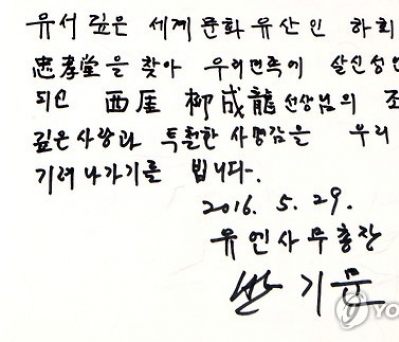 유서 깊은 세계문화 유산인 하회
忠孝堂을 찾아 우리민족에 살신성인
되신 西厓 柳成龍선생님의 조
깊은사랑과 투철한 사명감을 우리
기려나가기를 빕니다.
2016. 5. 29.
유엔사무총장
반기문
YO